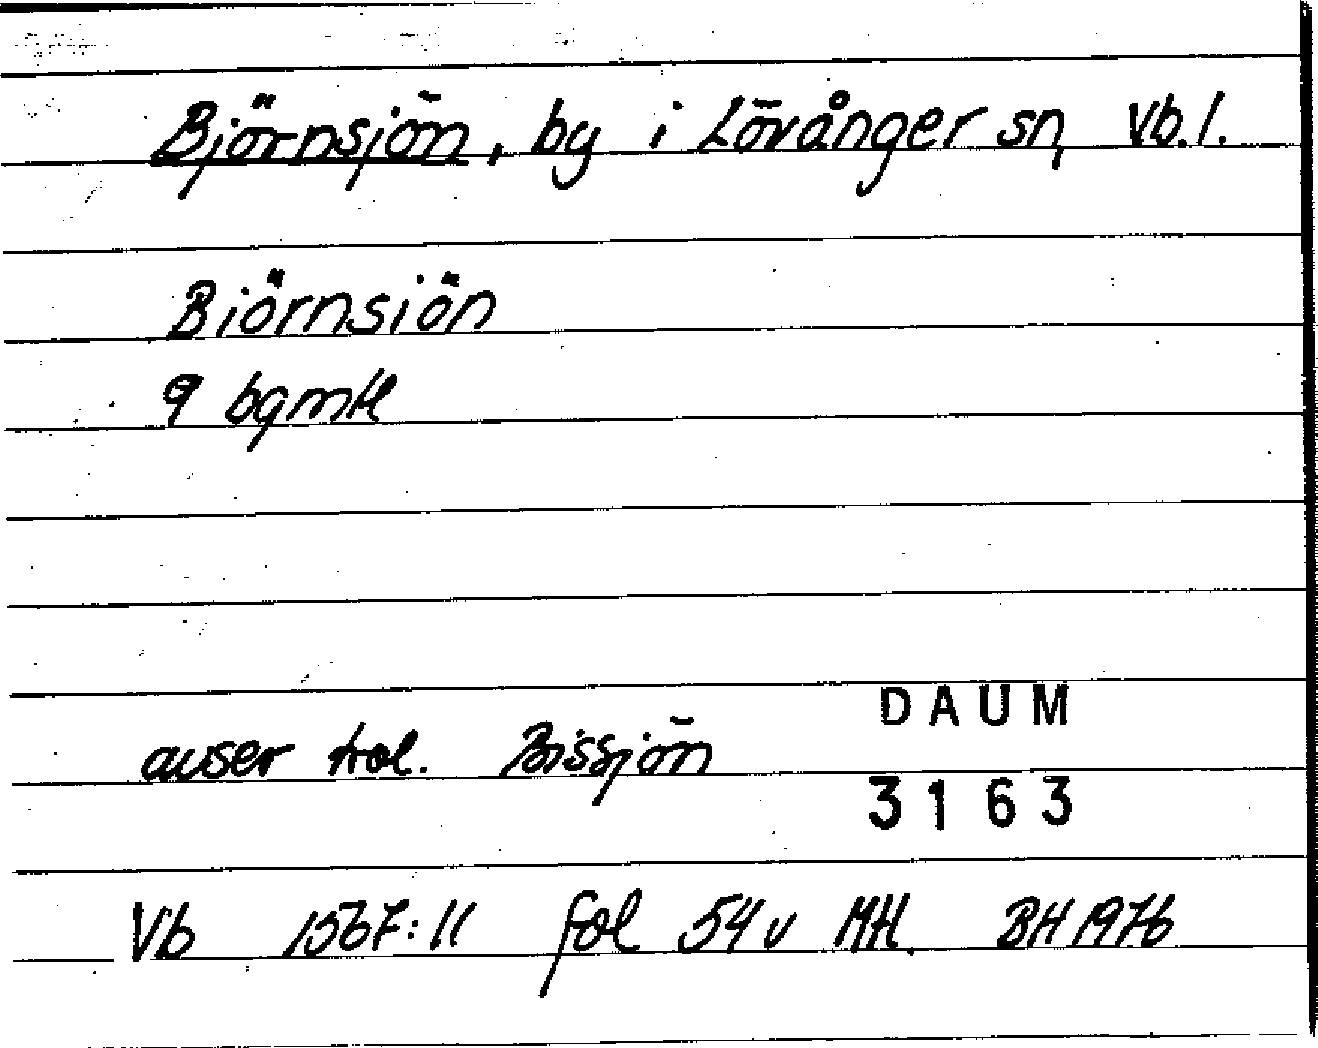 Björnsjön, by i Lövånger sn, Vb.l.
Biörnsiön
9 bgmtl
avser trol. Bissjön
DAUM
3163
Vb 1567:11 fol 54v MtL. BH 1976